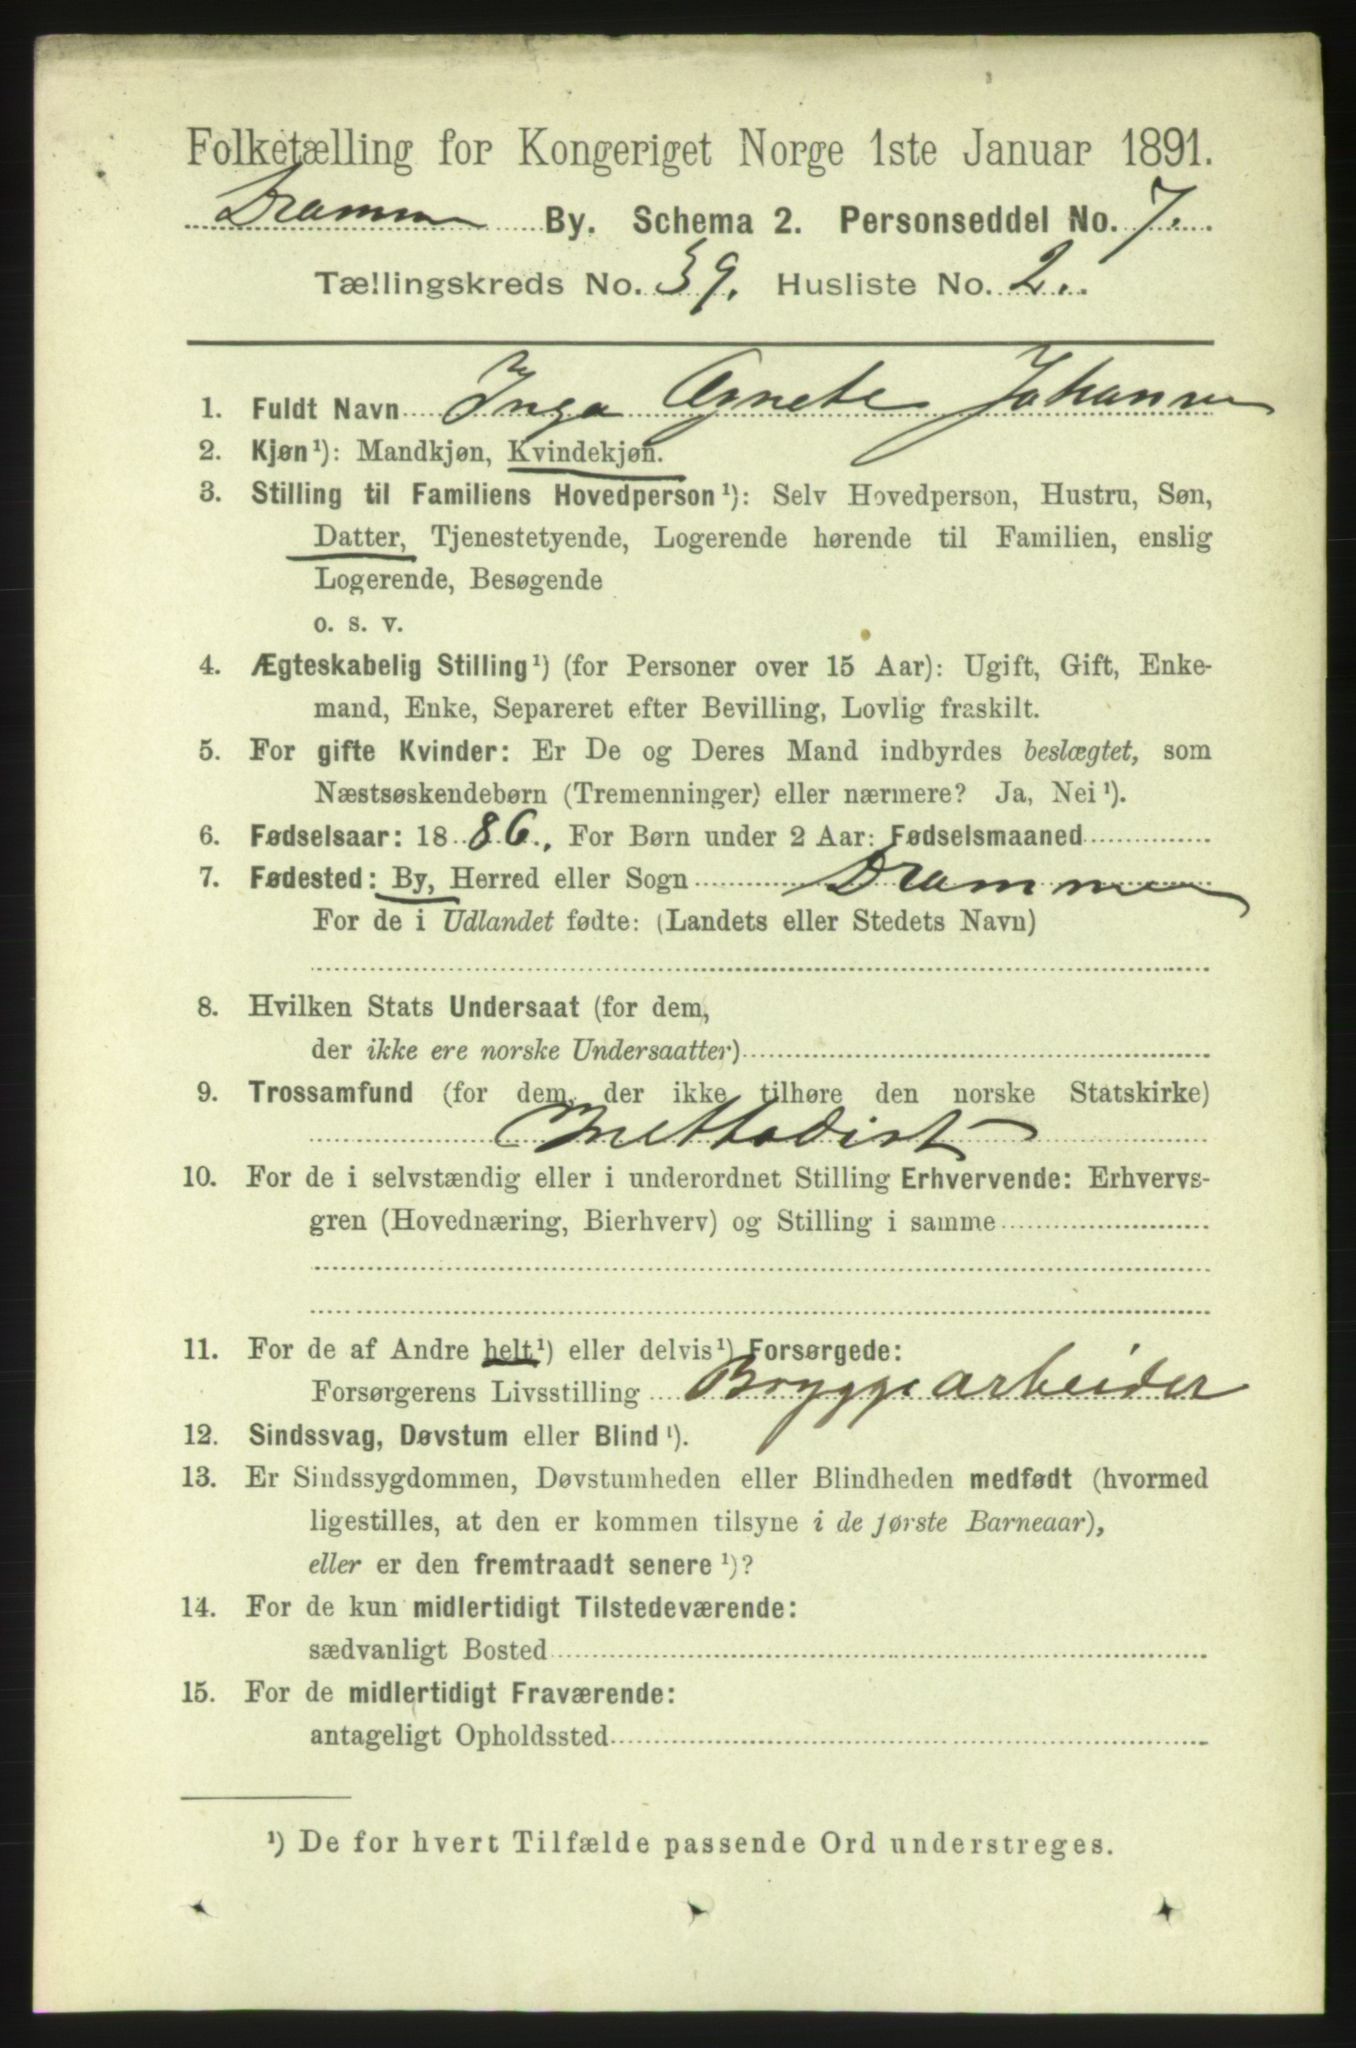 Folketælling for Kongeriget Norge 1ste Januar 1891.
Drammen By. Schema 2. Personseddel No. 7.
Tællingskreds No. 39. Husliste No. 2.
1. Fuldt Navn Inga Agnete Johansen
2. Kjøn¹): Mandkjøn, Kvindekjøn.
3. Stilling til Familiens Hovedperson¹): Selv Hovedperson, Hustru, Søn,
Datter, Tjenestetyende, Logerende hørende til Familien, enslig
Logerende, Besøgende
o. s. v.
4. Ægteskabelig Stilling¹) (for Personer over 15 Aar): Ugift, Gift, Enke-
mand, Enke, Separeret efter Bevilling, Lovlig fraskilt.
5. For gifte Kvinder: Er De og Deres Mand indbyrdes beslægtet, som
Næstsøskendebørn (Tremenninger) eller nærmere? Ja, Nei¹).
6. Fødselsaar: 1886. For Børn under 2 Aar: Fødselsmaaned
7. Fødested: By, Herred eller Sogn Drammen
For de i Udlandet fødte: (Landets eller Stedets Navn)
8. Hvilken Stats Undersaat (for dem,
der ikke ere norske Undersaatter)
9. Trossamfund (for dem, der ikke tilhøre den norske Statskirke)
Methodist
10. For de i selvstændig eller i underordnet Stilling Erhvervende: Erhvervs-
gren (Hovednæring, Bierhverv) og Stilling i samme
11. For de af Andre helt¹) eller delvis¹) Forsørgede:
Forsørgerens Livsstilling Bryggearbeider
12. Sindssvag, Døvstum eller Blind¹).
13. Er Sindssygdommen, Døvstumheden eller Blindheden medfødt (hvormed
ligestilles, at den er kommen tilsyne i de første Barneaar),
eller er den fremtraadt senere¹)?
14. For de kun midlertidigt Tilstedeværende:
sædvanligt Bosted
15. For de midlertidigt Fraværende:
antageligt Opholdssted
¹) De for hvert Tilfælde passende Ord understreges.